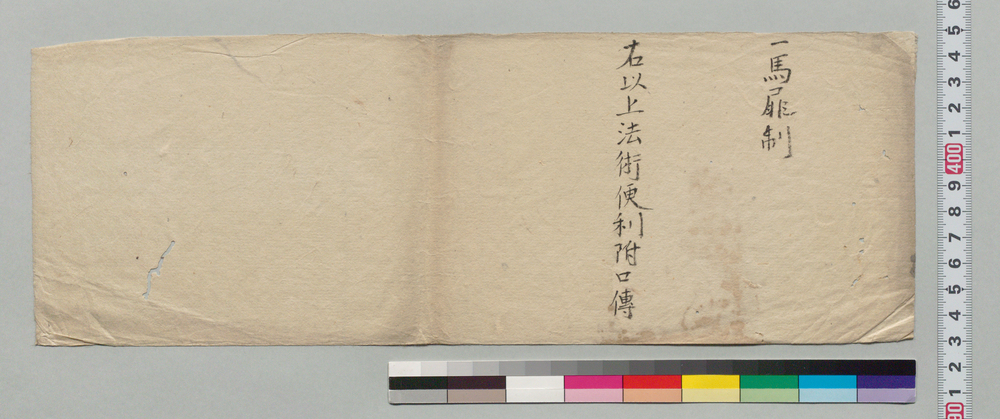 一馬屝制
右以上法術便利附口傳
6
5
4
3
2
1
400
9
8
7
6
5
4
3
2
1